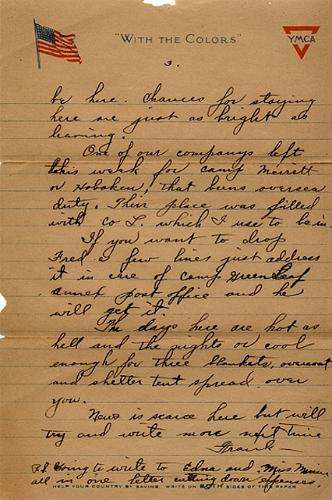 "WITH THE COLORS"
YMCA
3.
be here. Chances for staying
here are just as bright as
leaving.
One of our companys left
this week for camp Merritt
or Hoboken, that means oversea
duty. Their place was filled
with Co L. which I use to be in.
If you want to drop
Fred a few lines just address
it in care of Camp Greenleaf
annex post office and he
will get it.
The days here are hot as
hell and the nights or cool
enough for three blankets, overcoat
and shelter tent spread over
you.
News is scarce here but will
try and write more next time
Frank
P.S. Going to write to Edna and Miss
all in one letter cutting down expenses.
HELP YOUR COUNTRY BY SAVING. WRITE ON BOTH SIDES OF THIS PAPER